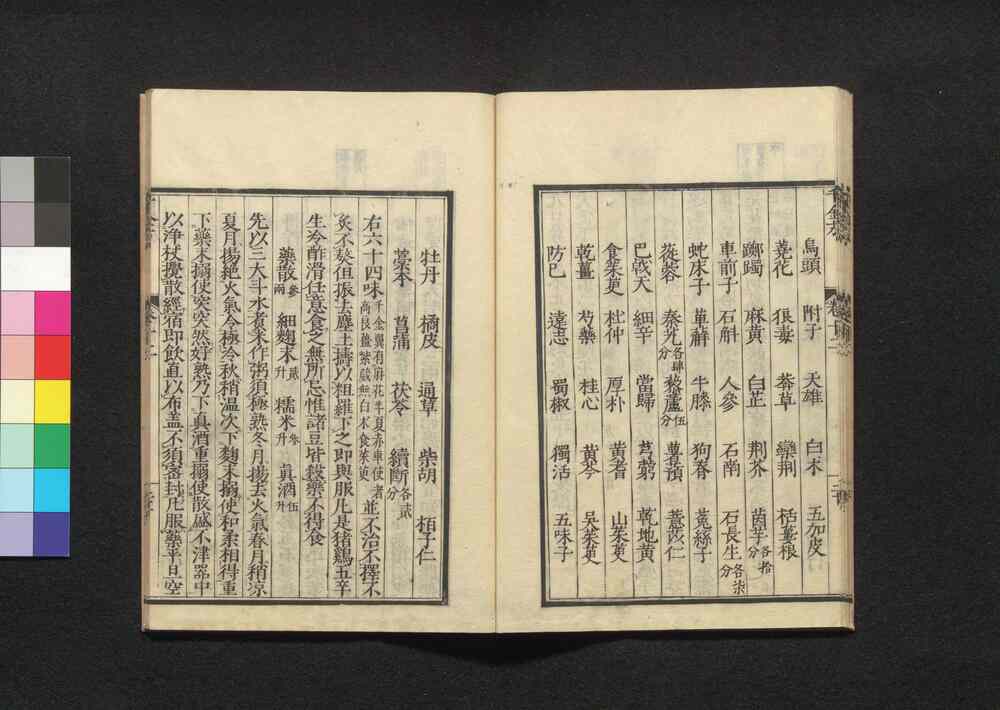 烏頭 附子 天雄 白朮 五加皮
莞花 狼毒 莽草 欒荊 栝蔞根
躑躅 麻黃 白芷 荊芥 茵芋各拾分
車前子 石斛 人參 石南 石長生各柒分
蛇床子 萆薢 牛膝 狗脊 菟絲子
蓯蓉 秦艽各肆分 藜蘆伍分 薯蕷 薏苡仁
巴戟天 細辛 當歸 芎藭 乾地黃
食茱萸 杜仲 厚朴 黃耆 山茱萸
乾薑 芍藥 桂心 黃芩 吳茱萸
防巳 遠志 蜀椒 獨活 五味子
牡丹 橘皮 通草 柴胡 栢子仁
藁本 菖蒲 茯苓 續斷各貳分
右六十四味千金翼有麻花半夏赤車使者高良薑紫葳無白朮食茱萸並不治不擇不
炙不熬但振去塵土擣以粗羅下之即與服凡是猪鷄五辛
生冷酢滑任意食之無所忌惟諸豆皆殺藥不得食
藥散參兩 細麴末貳升 糯米參升 真酒伍升
先以三大斗水煮米作粥須極熟冬月揚去火氣春月稍涼
夏月揚絕火氣令極冷秋稍温次下麴末搦使和柔相得重
下藥末搦使突突然好熟乃下真酒重搦使散盛不津器中
以淨杖攪散經宿即飲直以布蓋不須密封凡服藥平旦空